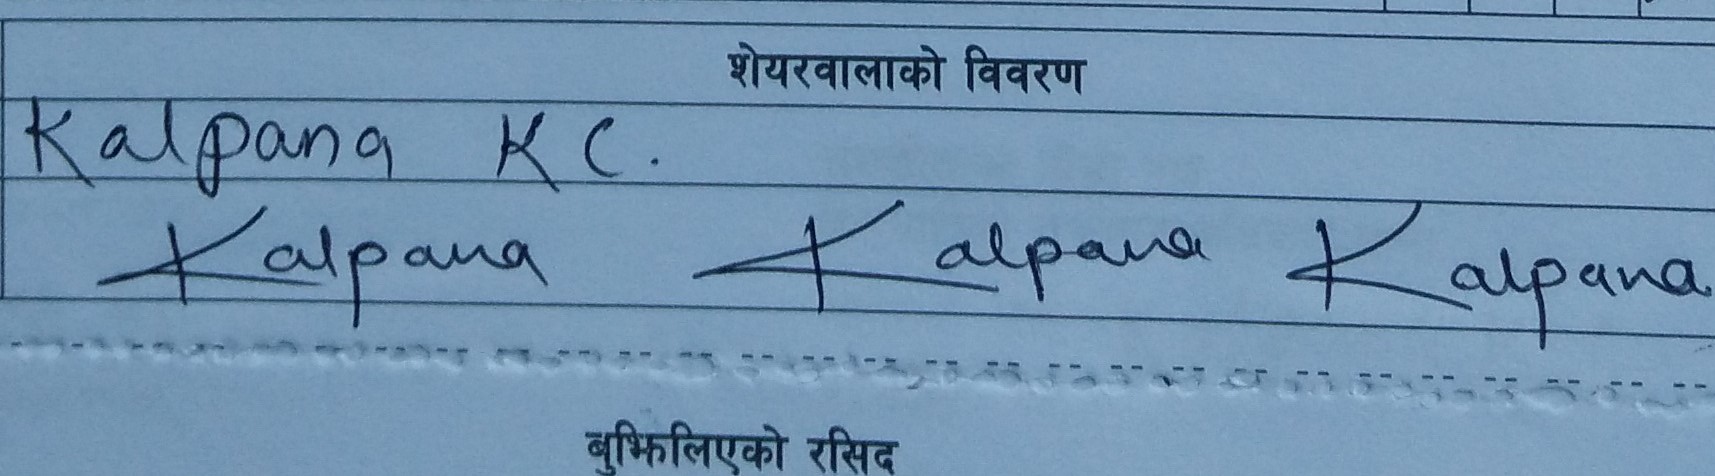 शेयरवालाको विवरण
Kalpana KC.
Kalpana Kalpana Kalpana
बुझिलिएको रसिद